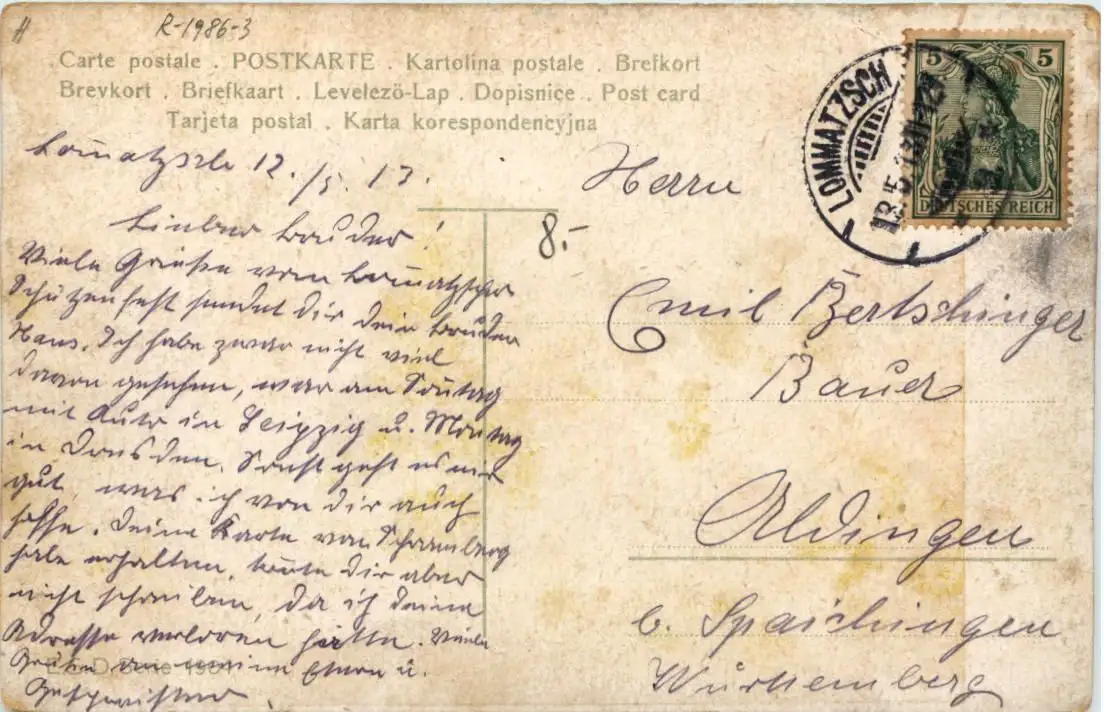 R-1986-3
Carte postale . POSTKARTE . Kartolina postale . Brefkort
Brevkort . Briefkaart . Levelező-Lap . Dopisnice . Post card
Tarjeta postal . Karta korespondencyjna
Lom̄atzsch 12./5.13.
Lieber Bruder!
Viele Grüße vom Lom̄atzscher
Schützenfest sendet dir dein Bruder
Hans. Ich habe zwar nicht viel
davon gesehen, war am Son̄tag
mit Auto in Leipzig u. Montag
in Dresden. Sonst geht es mir
gut, was ich von dir auch
hoffe. Deine Karte von Schramberg
habe erhalten, kon̄te dir aber
nicht schreiben, da ich deine
Adresse verloren hatte. Viele
Grüße an meine Eltern u.
Geschwister.
8.-
Herrn
Emil Bertschinger
Bauer
Aldingen
b. Spaichingen
Württemberg
LOMMATZSCH
13.5.13
5 5
DEUTSCHES REICH